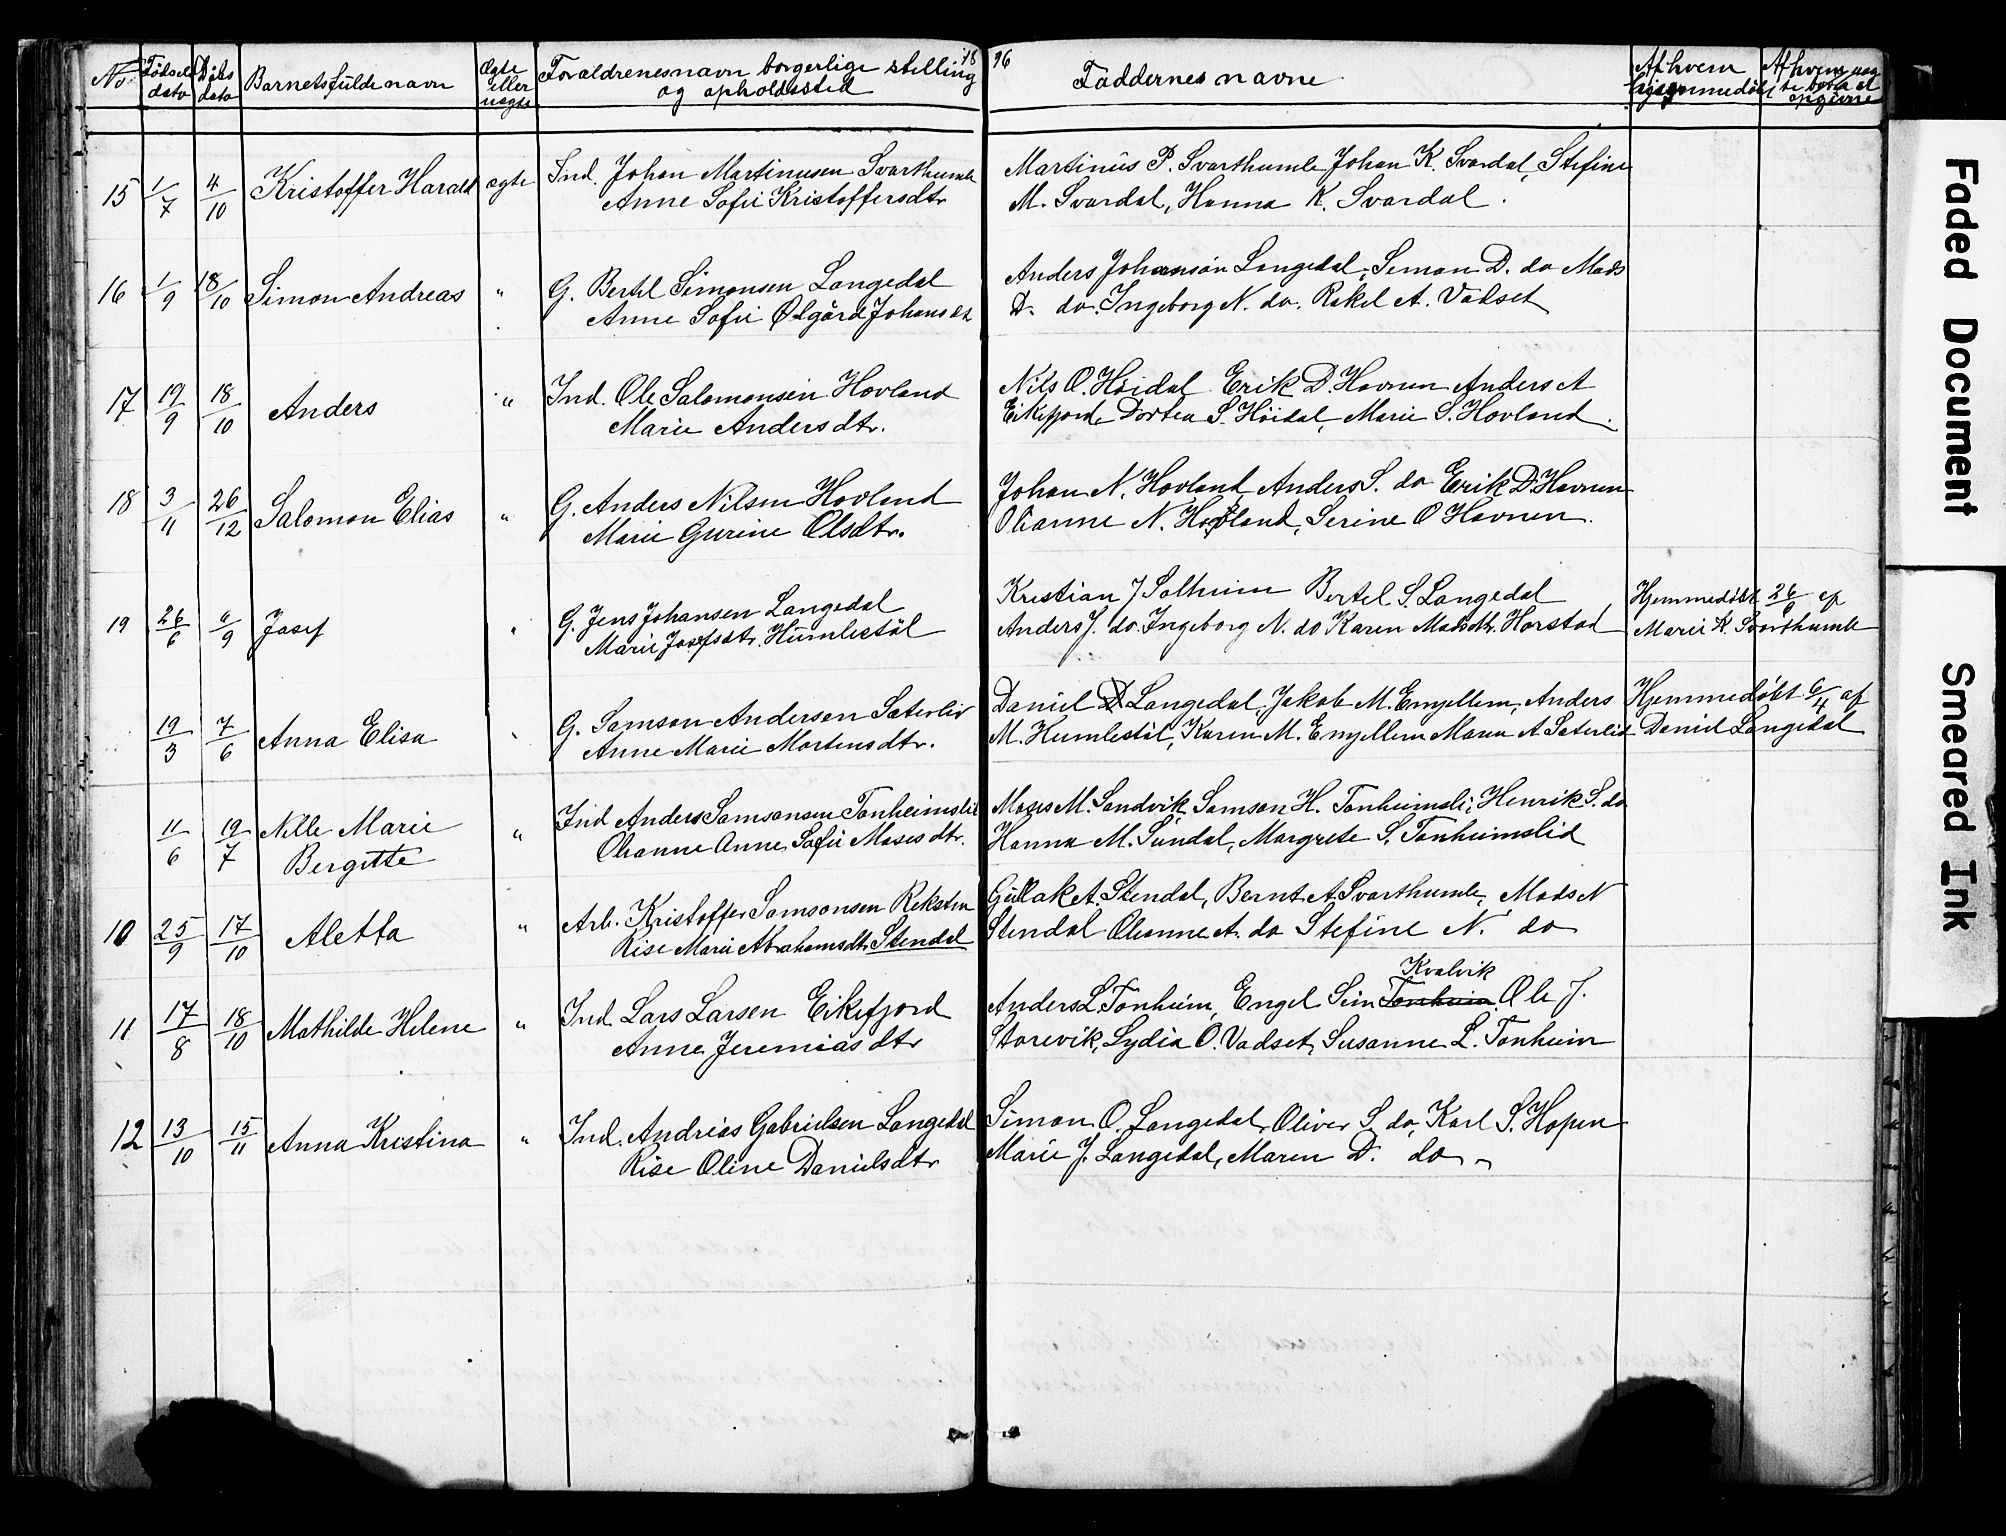 No Fødsels dato Dåbs dato Barnets fulde navn Ægte eller uægte Forældrenes navn borgerlige stilling og opholdssted 18
96 Faddernes navne Af hvem hjemmedøbt
15 1/7 4/10 Kristoffer Harald ægte Ind. Johan Martinusen Svarthumle
Anne Sofie Kristoffersdtr
Martinus P. Svarthumle Johan K. Svardal, Stefine
M. Svardal, Hanna K. Svardal.
16 1/9 18/10 Simon Andreas " G. Bertel Simonsen Langedal
Anne Sofie Ølgård Johansdt
Anders Johansøn Langedal, Simon D. do Mads
D. do. Ingeborg N. do. Rakel A. Vadset
17 19/9 18/10 Anders " Ind. Ole Salomonsen Hovland
Marie Andersdtr.
Nils O. Høidal Erik D. Havnen Anders A
Eikefjord, Dortea S. Høidal, Marie S. Hovland.
18 3/11 26/12 Salomon Elias " G. Anders Nilsen Hovland
Marie Gurine Olsdtr.
Johan N. Hovland, Anders S. do Erik D. Havnen
Olianne N. Hovland, Serine O Havnen.
19 26/6 6/9 Josef " G. Jens Johansen Langedal
Marie Josefsdtr. Humlestøl
Kristian J Solheim Bertel S. Langedal
Anders J. do. Ingeborg N. do Karen Madsdtr. Horstad
Hjemmedøbt 26/6 af
Marie K. Svarthumle
19/3 7/6 Anna Elisa " G. Samson Andersen Sæterlid
Anne Marie Mortensdtr.
Daniel D Langedal, Jakob M. Emjellem, Anders
M. Humlestøl, Karen M. Emjellem Maren A. Sæterlid
Hjemmedøbt 6/4 af
Daniel Langedal
11/6 19/7 Nille Marie " Ind Anders Samsonsen Tonheimslid
Bergitte Olianne Anne Sofie Mosesdtr.
Moses M. Sandvik, Samson H. Tonheimsli, Henrik S. do
Hanna M. Sundal, Margrete S. Tonheimslid
10 25/9 17/10 Aletta " Arb. Kristoffer Samsonsen Reksten
Rise Marie Abrahamsdtr Stendal
Gullak A. Stendal, Bernt A Svarthumle, Mads N
Stendal Olianne A. do Stefine N. do
11 17/8 18/10 Mathilde Helene " Ind. Lars Larsen Eikefjord
Anne Jeremiasdtr
Kvalvik
Anders L Tonheim, Engel Sim Tonheim Ole J.
Storevik, Lydia O. Vadset, Susanne L. Tonheim
12 13/10 15/11 Anna Kristina " Ind. Andreas Gabrielsen Langedal
Rise Oline Danielsdtr
Simon O. Langedal, Oliver S. do, Karl S. Hopen
Marie J. Langedal, Maren D. do
Faded Document
Smeared Ink